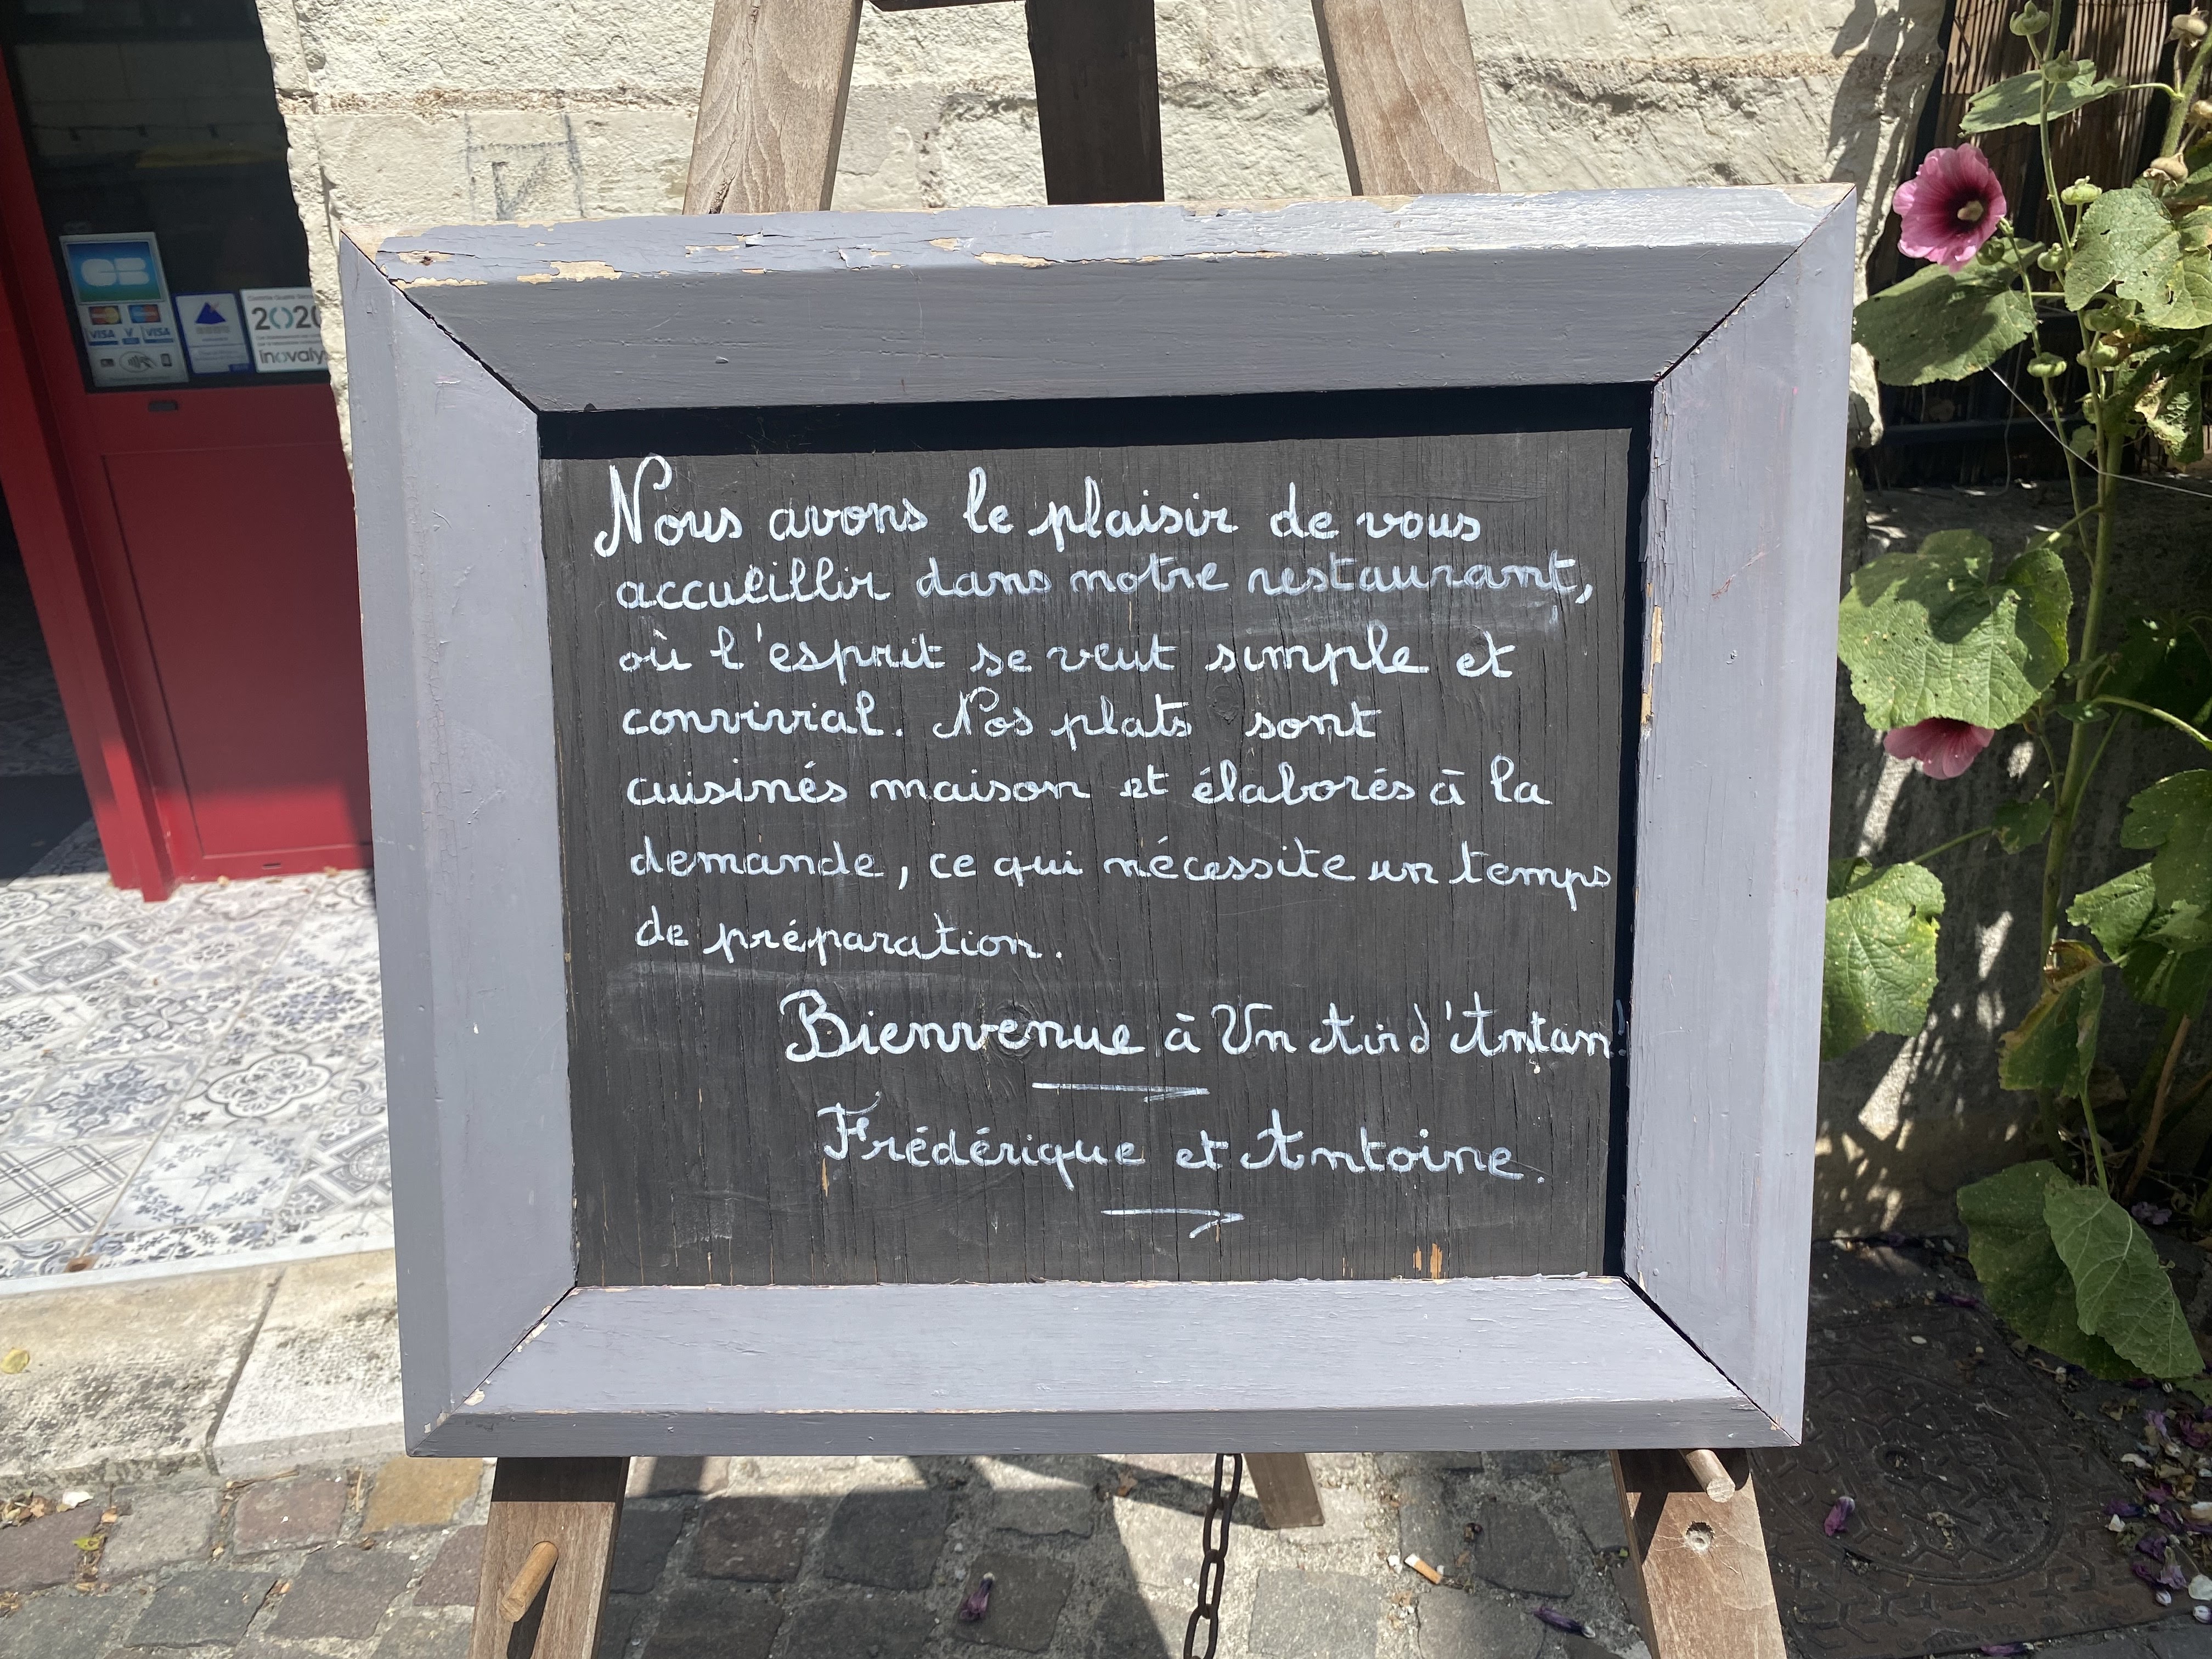 CB
VISA V VISA
2020
inovaly
Nous avons le plaisir de vous
accueillir dans notre restaurant,
où l'esprit se veut simple et
convivial. Nos plats sont
cuisinés maison et élaborés à la
demande, ce qui nécessite un temps
de préparation.
Bienvenue à Un Air d'Antan!
Frédérique et Antoine.